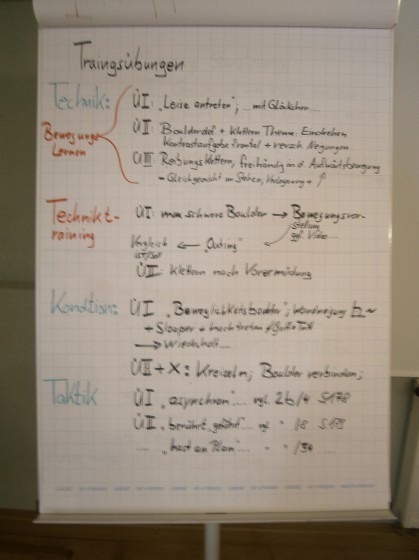 Traingsübungen
Technik: ÜI: "Leise antreten"; ... mit Glöckchen....
Bewegungs Lernen
ÜII: Boulderdef + Klettern Thema: Eindrehen,
Kontrastaufgabe frontal + versch. Neigungen
ÜIII Reibungsklettern, freihändig in d. Aufwärtsbewegung
- Gleichgewicht im Stehen, Verlagerung +
Technik-training
ÜI: max schwere Boulder → Bewegungsvorstellung
ggf. Video
Vergleich ist/soll ← "Outing"
ÜII: Klettern nach Vorermüdung
Kondition: ÜI "Beweglichkeitsboulder"; Wandneigung
+ Sloper + hoch treten
→ Wiederholt....
ÜII + X: Kreiseln; Boulder verbinden;
Taktik ÜI "asynchron".... vgl. 2b/4 S178
ÜII "berührt, geführt".... vgl. " 1/8 S179
.... "hast an Plan".... " " 1/34 ....